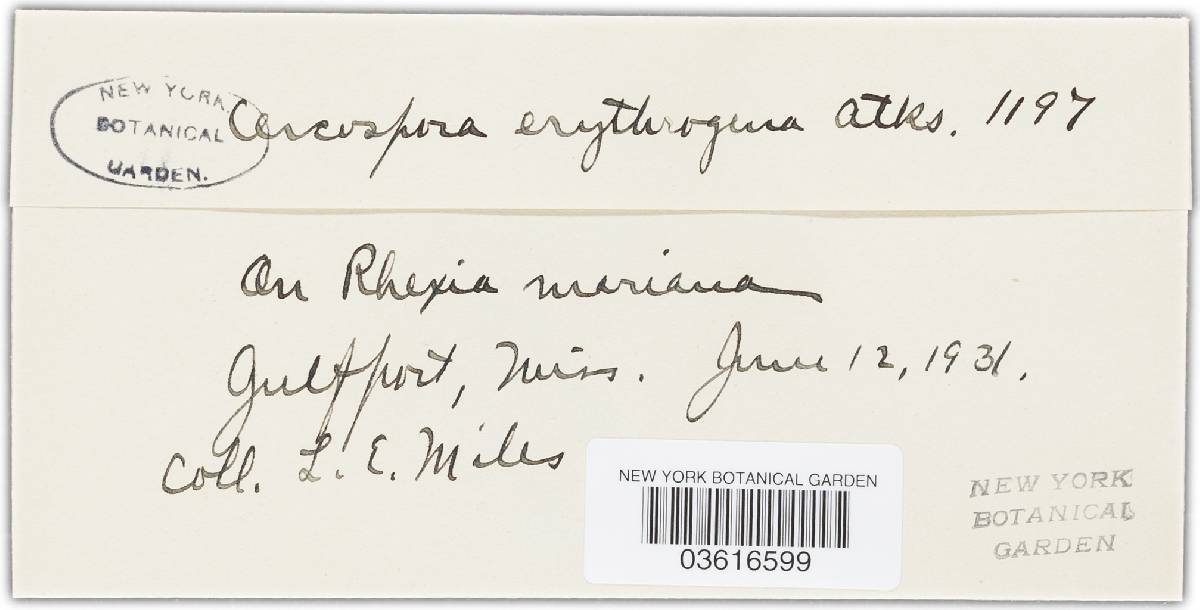 NEW YORK
BOTANICAL
GARDEN.
Cercospora erythrogena Atks. 1197
On Rhexia mariana
Gulfport, Miss. June 12, 1931.
Coll. L. E. Miles
NEW YORK BOTANICAL GARDEN
03616599
NEW YORK
BOTANICAL
GARDEN